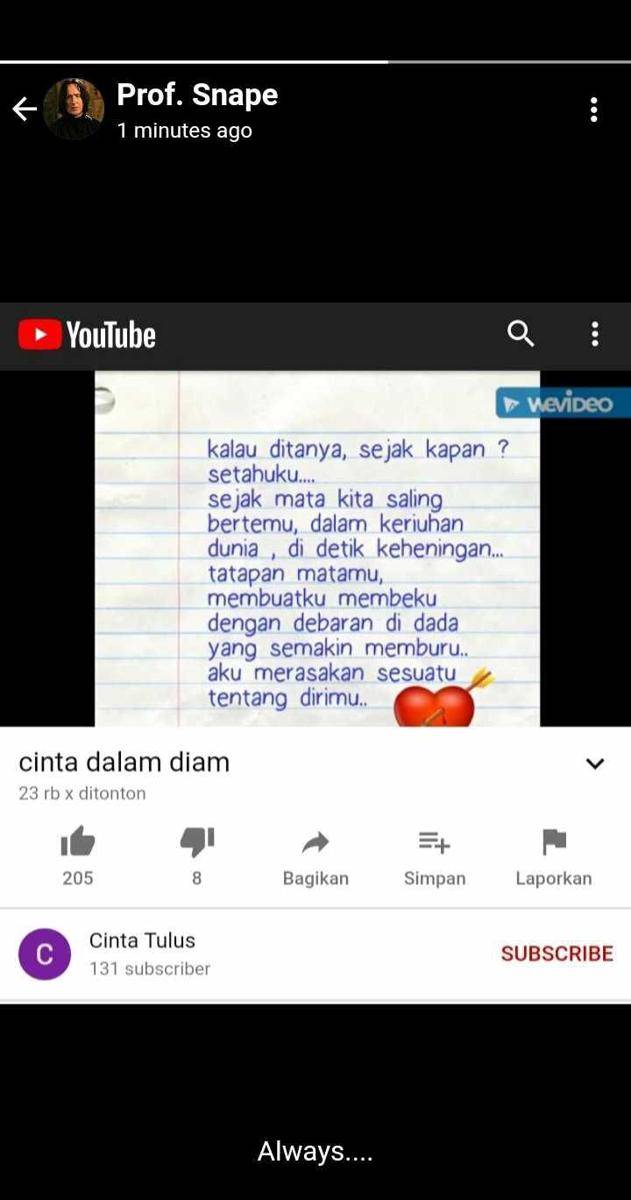 Prof. Snape
1 minutes ago
YouTube
WeVideo
kalau ditanya, sejak kapan ?
setahuku....
sejak mata kita saling
bertemu, dalam keriuhan
dunia , di detik keheningan...
tatapan matamu,
membuatku membeku
dengan debaran di dada
yang semakin memburu..
aku merasakan sesuatu
tentang dirimu..
cinta dalam diam
23 rb x ditonton
205
8
Bagikan
Simpan
Laporkan
C
Cinta Tulus
131 subscriber
SUBSCRIBE
Always....